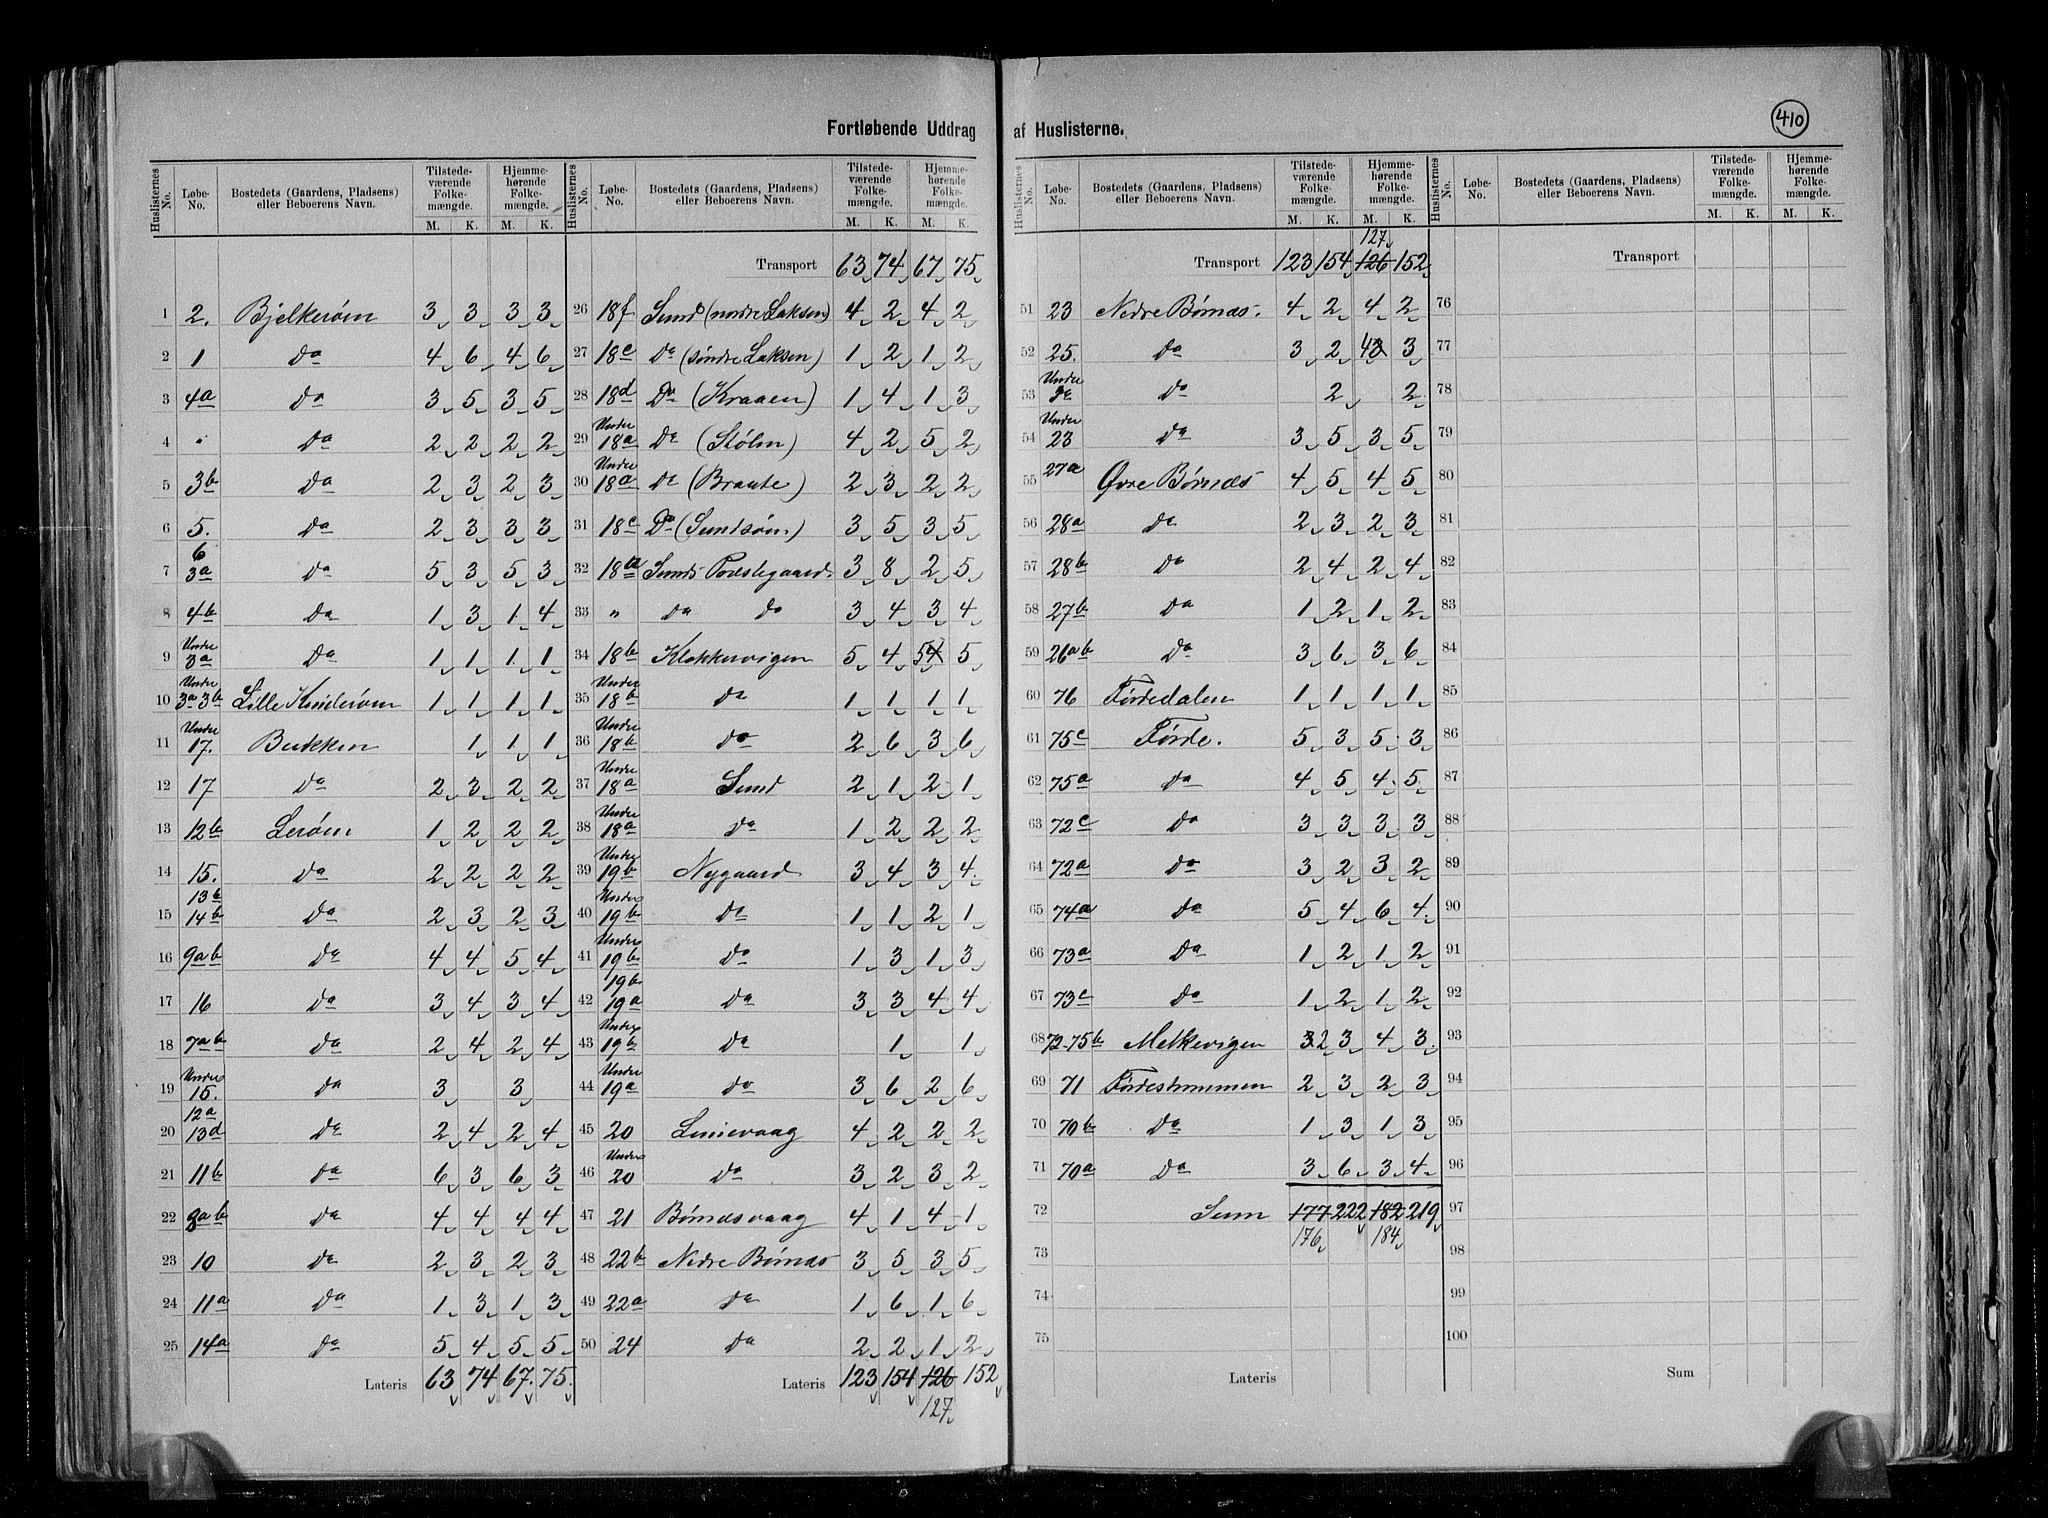 Fortløbende Uddrag af Huslisterne.
410
Huslisternes No. | Løbe-No. | Bostedets (Gaardens, Pladsens) eller Beboerens Navn. | Tilstedeværende Folkemængde. M. K. | Hjemmehørende Folkemængde. M. K.
1 2. Bjelkerøen 3 3 3 3
2 1 Do 4 6 4 6
3 4a Do 3 5 3 5
4 " Do 2 2 2 2
5 3b Do 2 3 2 3
6 5. Do 2 3 3 3
7 6 3a Do 5 3 5 3
8 4b Do 1 3 1 4
9 Under 3a Do 1 1 1 1
10 Under 3a 3b Lille Kinderøen 1 1 1 1
11 Under 17. Bukken 1 1 1
12 17 Do 2 3 2 2
13 12b Lerøen 1 2 2 2
14 15. Do 2 2 2 2
15 13b 14b Do 2 3 2 3
16 9ab Do 4 4 5 4
17 16 Do 3 4 3 4
18 7ab Do 2 4 2 4
19 Under 15. Do 3 3
20 12a 13d Do 2 4 2 4
21 11b Do 6 3 6 3
22 8ab Do 4 4 4 4
23 10 Do 2 3 2 3
24 11a Do 1 3 1 3
25 14a Do 5 4 5 5
Lateris 63 74 67. 75.
Huslisternes No. | Løbe-No. | Bostedets (Gaardens, Pladsens) eller Beboerens Navn. | Tilstedeværende Folkemængde. M. K. | Hjemmehørende Folkemængde. M. K.
Transport 63 74 67 75
26 18f Sund (nordre Laksen) 4 2 4 2
27 18e Do (søndre Laksen) 1 2 1 2
28 18d Do (Kraaen) 1 4 1 3
29 Under 18a Do (Stølen) 4 2 5 2
30 Under 18a Do (Braute) 2 3 2 2
31 18c Do (Sundsøen) 3 5 3 5
32 18a Sunds Præstegaard. 3 8 2 5
33 " Do Do 3 4 3 4
34 18b Klokkervigen 5 4 54 5
35 Under 18b Do 1 1 1 1
36 Under 18b Do 2 6 3 6
37 Under 18a Sund 2 1 2 1
38 Under 18a Do 1 2 2 2
39 Under 19b Nygaard 3 4 3 4
40 Under 19b Do 1 1 2 1
41 Under 19b Do 1 3 1 3
42 19b 19a Do 3 3 4 4
43 Under 19b Do 1 1
44 Under 19a Do 3 6 2 6
45 20 Lenievaag 4 2 2 2
46 Under 20 Do 3 2 3 2
47 21 Børnæsvaag 4 1 4 1
48 22b Nedre Børnæs 3 5 3 5
49 22a Do 1 6 1 6
50 24 Do 2 2 1 2
Lateris 123 154 126 152
127
Huslisternes No. | Løbe-No. | Bostedets (Gaardens, Pladsens) eller Beboerens Navn. | Tilstedeværende Folkemængde. M. K. | Hjemmehørende Folkemængde. M. K.
127
Transport 123 154 126 152
51 23 Nedre Børnæs. 4 2 4 2
52 25. Do 3 2 43 3
53 Under Do 2 2
54 Under 23 Do 3 5 3 5
55 27a Øvre Børnæs 4 5 4 5
56 28a Do 2 3 2 3
57 28b Do 2 4 2 4
58 27b Do 1 2 1 2
59 26ab Do 3 6 3 6
60 76 Førdedalen 1 1 1 1
61 75c Førde. 5 3 5 3
62 75a Do 4 5 4 5
63 72c Do 3 3 3 3
64 72a Do 3 2 3 2
65 74a Do 5 4 6 4
66 73a Do 1 2 1 2
67 73c Do 1 2 1 2
68 72-75b Melkevigen 32 3 4 3
69 71 Førdestrømmen 2 3 2 3
70 70b Do 1 3 1 3
71 70a Do 3 6 3 4
72 Sum 177 222 182 219
73 176 184
74
75
Lateris
Huslisternes No. | Løbe-No. | Bostedets (Gaardens, Pladsens) eller Beboerens Navn. | Tilstedeværende Folkemængde. M. K. | Hjemmehørende Folkemængde. M. K.
Transport
76
77
78
79
80
81
82
83
84
85
86
87
88
89
90
91
92
93
94
95
96
97
98
99
100
Sum